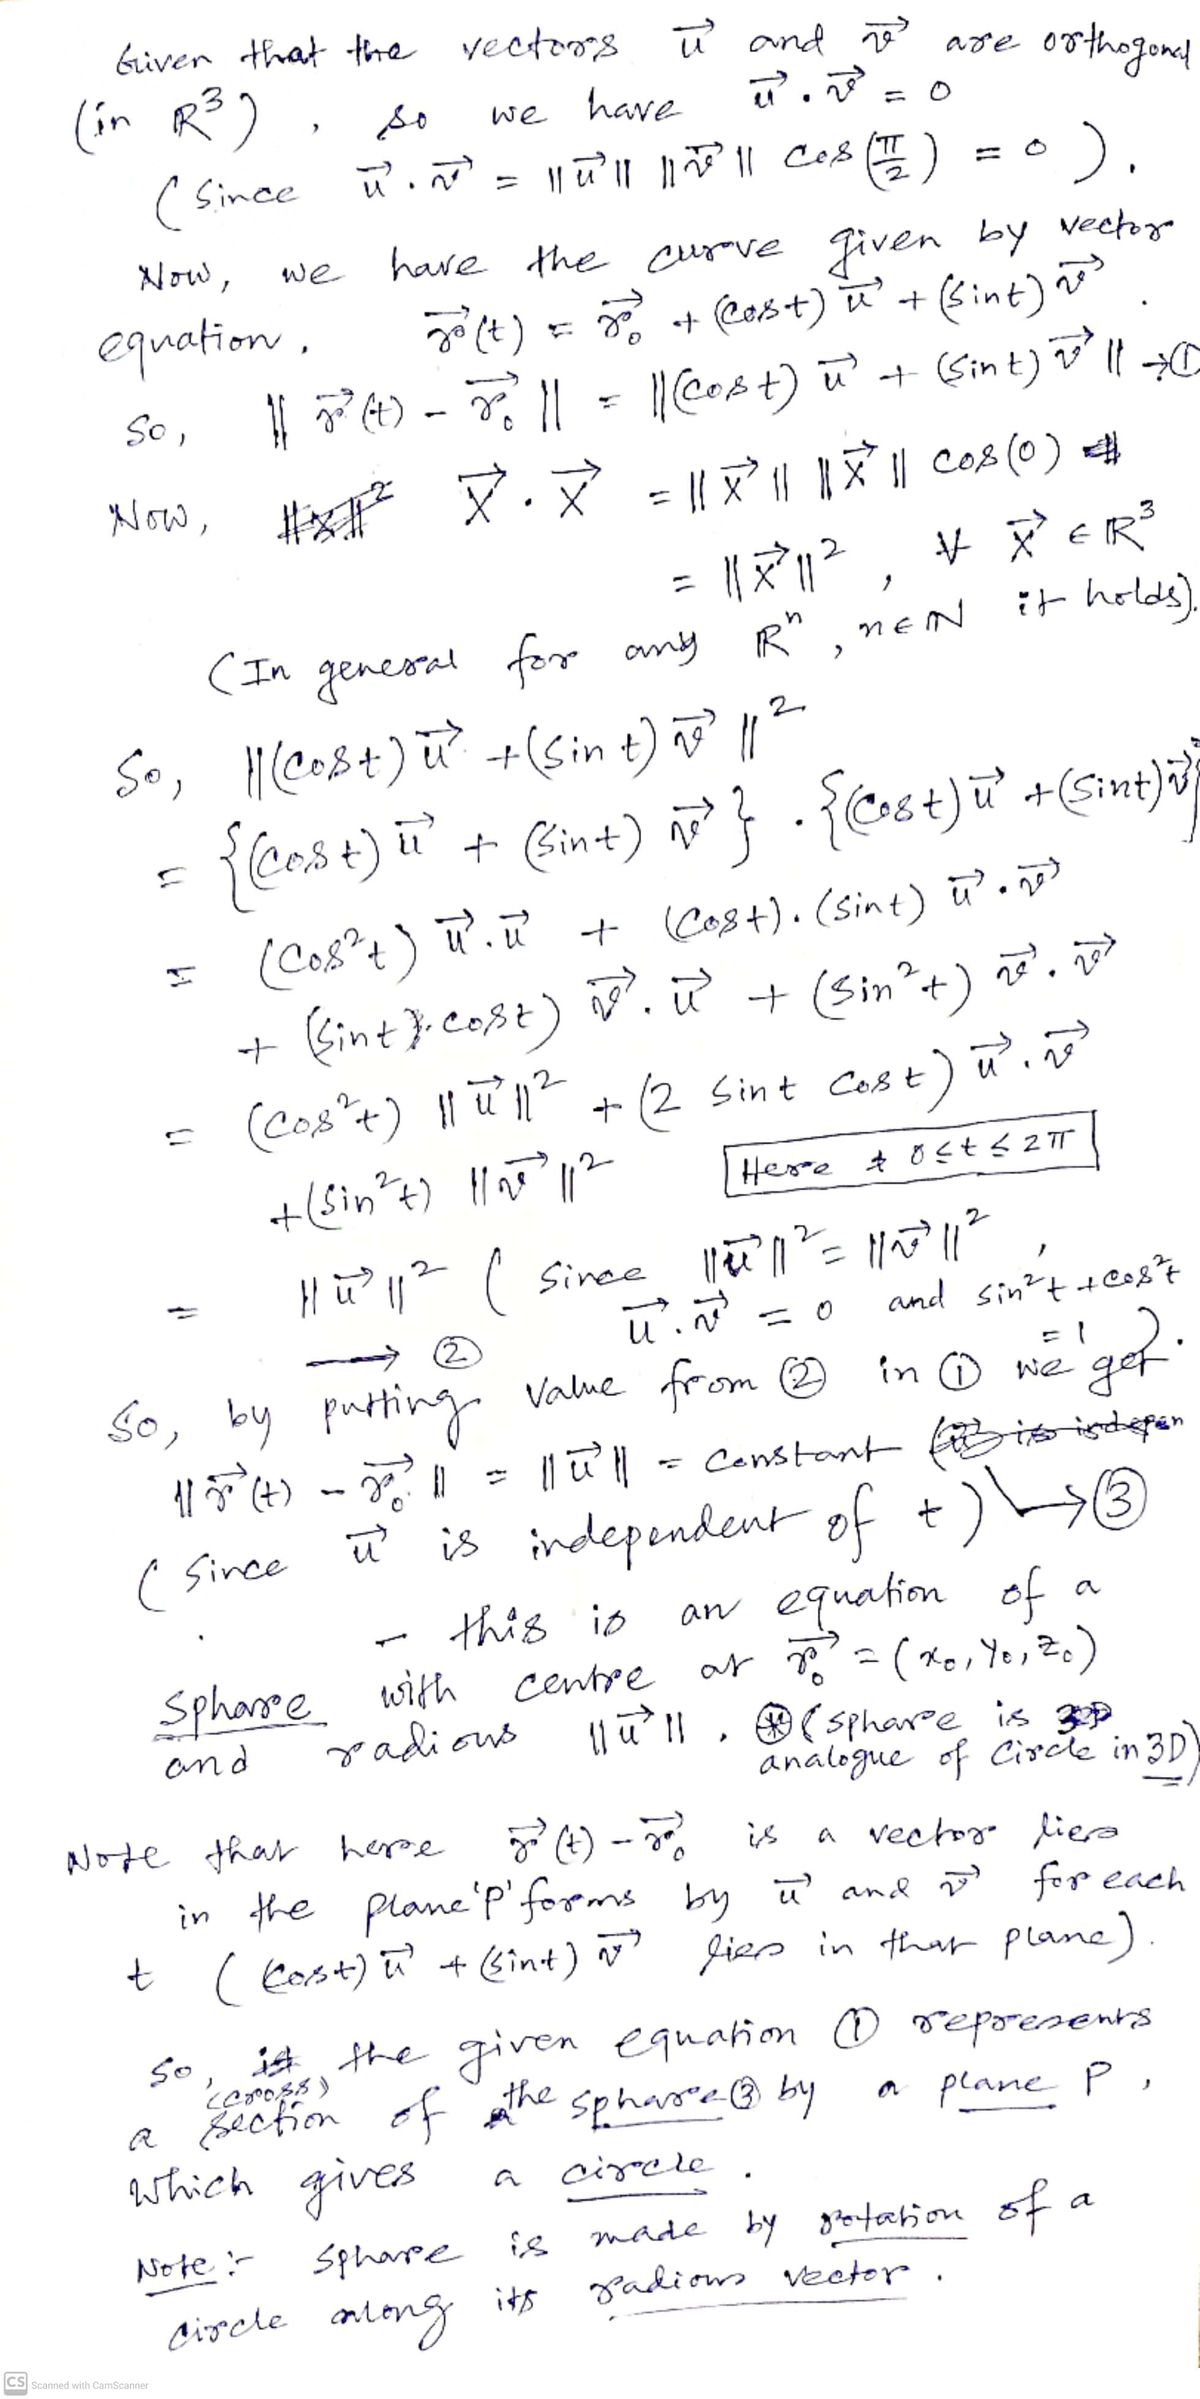 Given that the vectors u⃗ and v⃗ are orthogonal
(in R³), so we have u⃗ . v⃗ = 0
(Since u⃗ . v⃗ = ||u⃗|| ||v⃗|| Cos(π/2) = 0).
Now, we have the curve given by vector
equation, r⃗(t) = r⃗₀ + (Cost) u⃗ + (Sint) v⃗.
So, || r⃗(t) - r⃗₀ || = ||(Cost) u⃗ + (Sint) v⃗ || → ①
Now, X⃗ . X⃗ = ||X⃗|| ||X⃗|| cos(0)
= ||X⃗||² , ∀ X⃗ ∈ ℝ³
(In general for any ℝⁿ, n∈ℕ it holds).
So, ||(Cost) u⃗ + (Sint) v⃗ ||²
= {(Cost) u⃗ + (Sint) v⃗ } . {(Cost) u⃗ + (Sint) v⃗}
= (Cos²t) u⃗.u⃗ + (Cost).(Sint) u⃗ . v⃗
+ (Sint).cost) v⃗ . u⃗ + (Sin²t) v⃗ . v⃗
= (Cos²t) ||u⃗||² + (2 Sint Cost) u⃗ . v⃗
+(Sin²t) ||v⃗||² Here 0≤t≤2π
= ||u⃗||² ( Since ||u⃗||² = ||v⃗||²,
u⃗ . v⃗ = 0 and sin²t + cos²t
= 1).
→ ②
So, by putting value from ② in ① we get
||r⃗(t) - r⃗₀|| = ||u⃗|| = Constant
(Since u⃗ is independent of t) → ③
- this is an equation of a
Sphare with centre at r⃗₀ = (x₀, y₀, z₀)
and radious ||u⃗||. (* (sphare is
analogue of Circle in 3D)
Note that here r⃗(t) - r⃗₀ is a vector lies
in the plane 'P' forms by u⃗ and v⃗ for each
t ( (Cost) u⃗ + (Sint) v⃗ lies in that plane).
So, the given equation ① represents
a (cross) section of the sphare ③ by a plane P,
Which gives a circle.
Note:- Sphare is made by rotation of a
circle along its radious vector.
CS Scanned with CamScanner